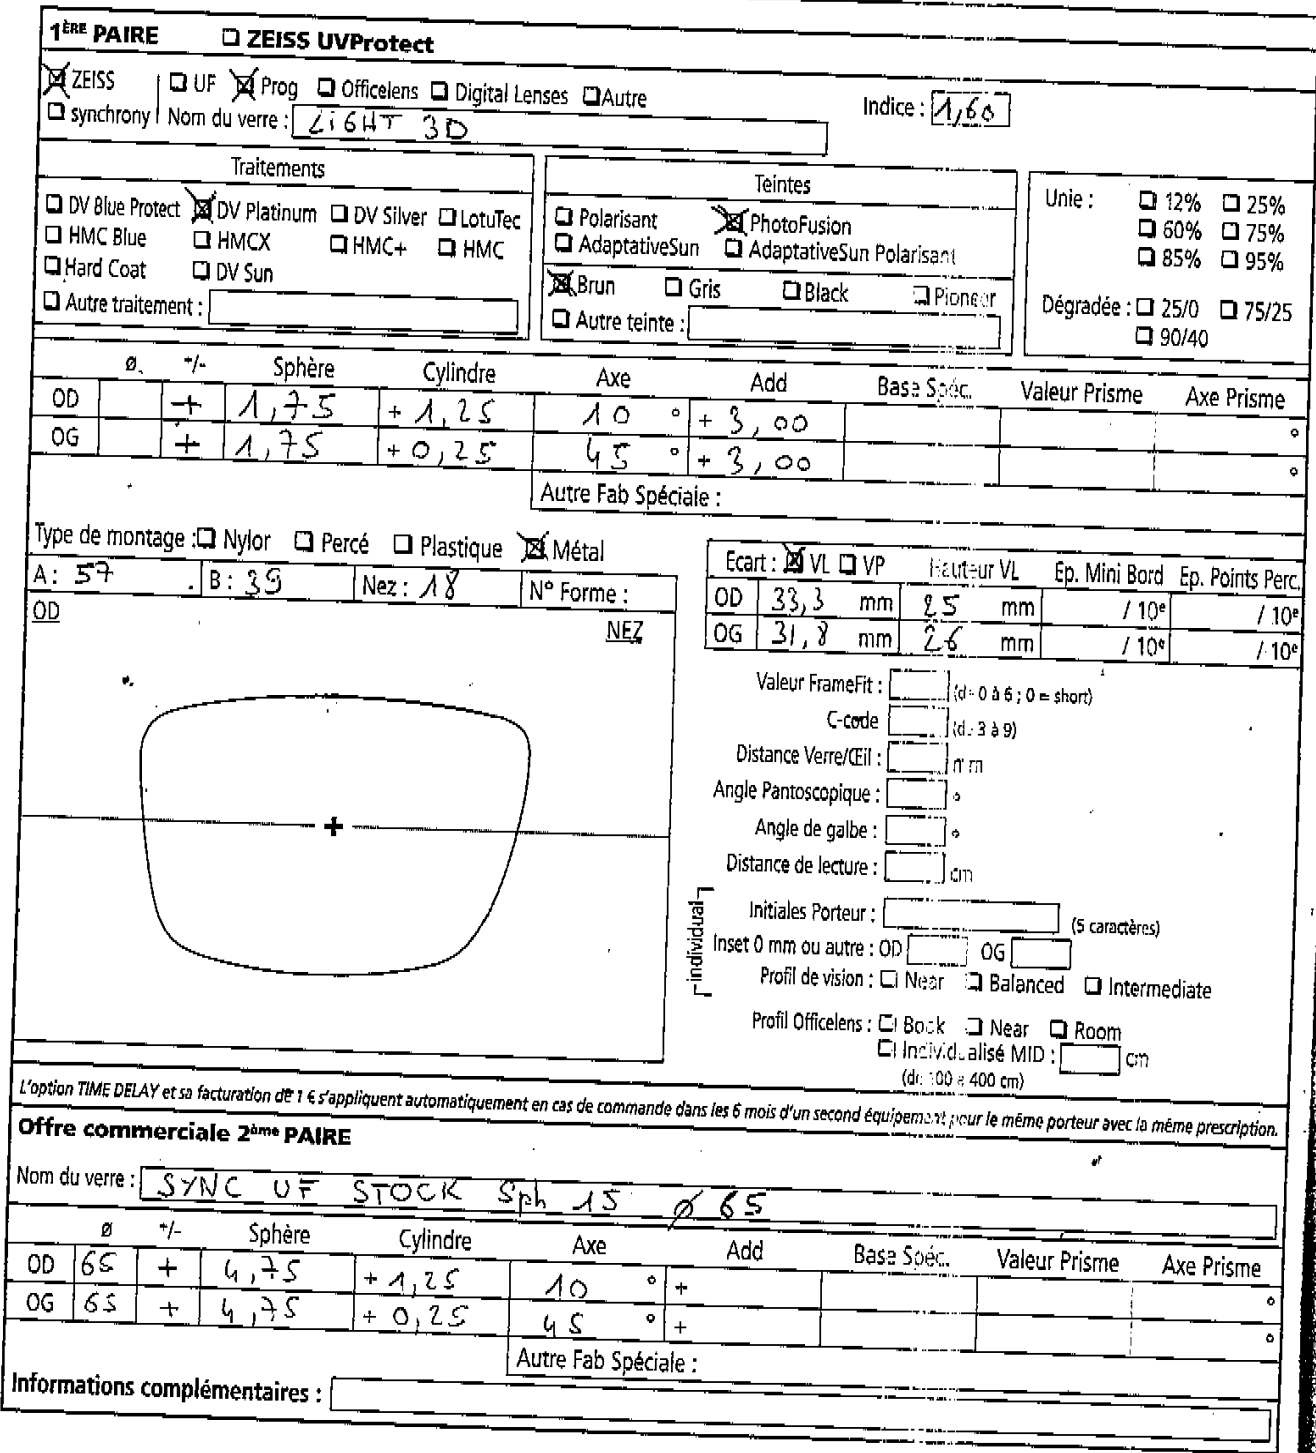 1ÈRE PAIRE ZEISS UVProtect
ZEISS UF Prog Officelens Digital Lenses Autre Indice : 1,60
synchrony Nom du verre : LIGHT 3D
Traitements
DV Blue Protect DV Platinum DV Silver LotuTec
HMC Blue HMCX HMC+ HMC
Hard Coat DV Sun
Autre traitement :
Teintes
Polarisant PhotoFusion
AdaptativeSun AdaptativeSun Polarisant
Brun Gris Black Pioneer
Autre teinte :
Unie : 12% 25%
60% 75%
85% 95%
Dégradée : 25/0 75/25
90/40
ø +/- Sphère Cylindre Axe Add Base Spéc. Valeur Prisme Axe Prisme
OD + 1,75 + 1,25 10 ° + 3,00 °
OG + 1,75 + 0,25 45 ° + 3,00 °
Autre Fab Spéciale :
Type de montage : Nylor Percé Plastique Métal
A : 57 B : 39 Nez : 18 N° Forme :
OD
NEZ
Ecart : VL VP Hauteur VL Ep. Mini Bord Ep. Points Perc.
OD 33,3 mm 25 mm / 10e / 10e
OG 31,8 mm 26 mm / 10e / 10e
Valeur FrameFit : (de 0 à 6 ; 0 = short)
C-code (de 3 à 9)
Distance Verre/Œil : mm
Angle Pantoscopique : °
Angle de galbe : °
Distance de lecture : cm
individual
Initiales Porteur : (5 caractères)
Inset 0 mm ou autre : OD OG
Profil de vision : Near Balanced Intermediate
Profil Officelens : Book Near Room
Individualisé MID : cm
(de 100 à 400 cm)
L'option TIME DELAY et sa facturation de 1 € s'appliquent automatiquement en cas de commande dans les 6 mois d'un second équipement pour le même porteur avec la même prescription.
Offre commerciale 2ème PAIRE
Nom du verre : SYNC UF STOCK Sph 15 ø 65
ø +/- Sphère Cylindre Axe Add Base Spéc. Valeur Prisme Axe Prisme
OD 65 + 4,75 + 1,25 10 ° + °
OG 65 + 4,75 + 0,25 45 ° + °
Autre Fab Spéciale :
Informations complémentaires :